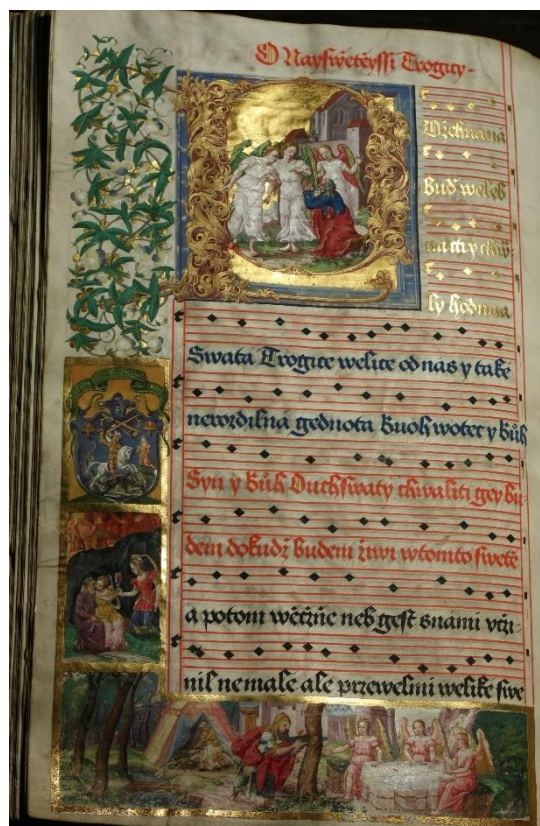 O Nayswětěyssi Trogicy.
Požehnaná
Buď weleb
na cti y chw
ly hodna
Swata Trogice welice od nas y take
nerozdilna gednota Buoh wotec y Bůh
Syn y Bůh Duch swaty chwaliti gey bu
dem dokudž budem žiwi w tomto swetě
a potom wěčzně neb gest snami včzi
nil ne male ale przewelmi welike swe